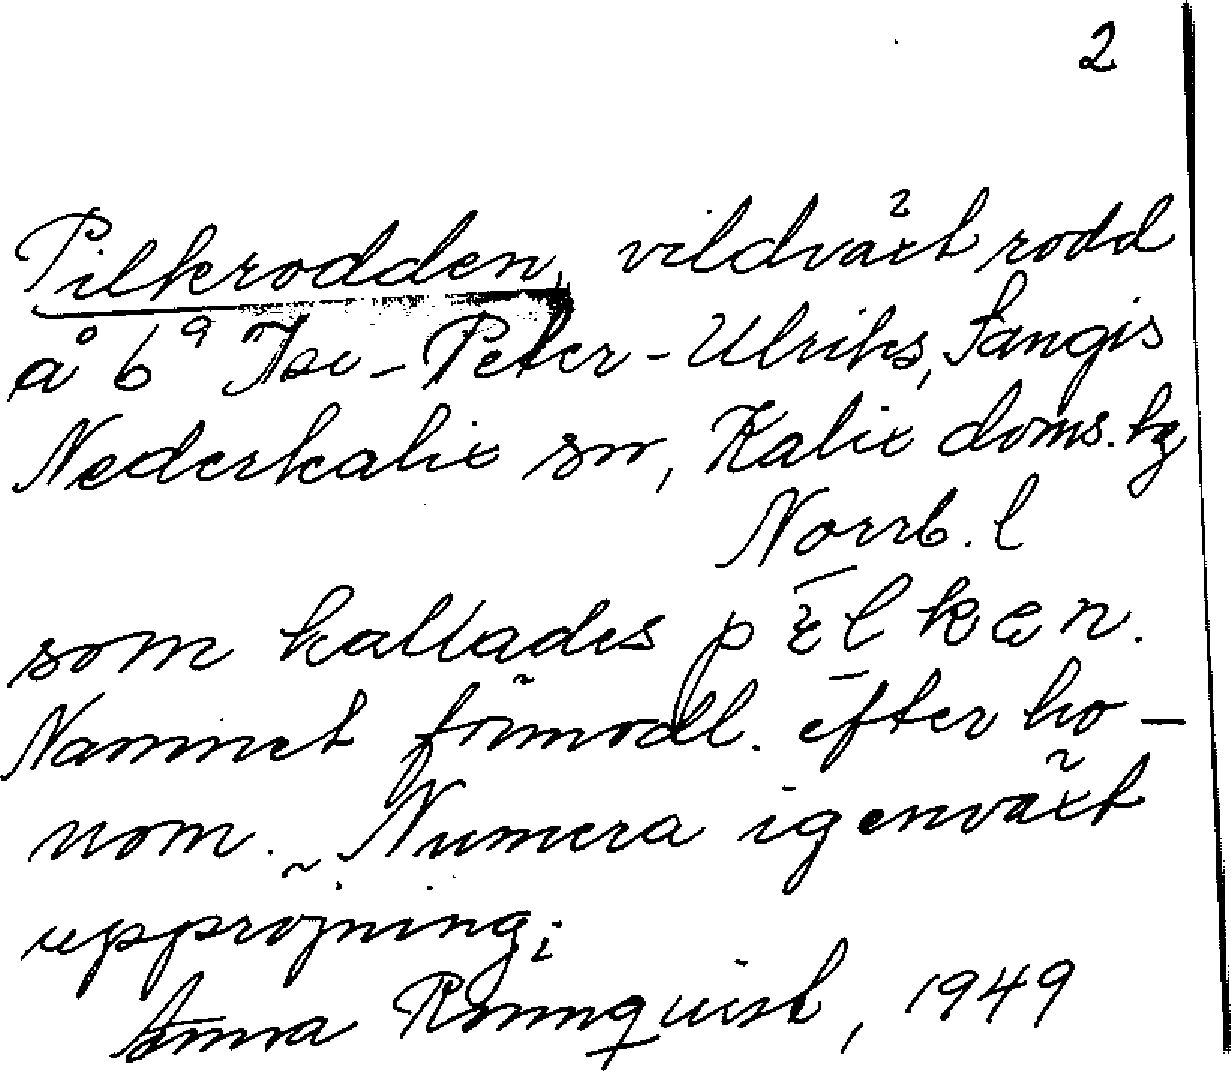 2
Pilkrodden, vildväxt rodd
å 6⁹ Per-Ulriks, Sangis
Nederkalix sn, Kalix doms.hg
Norrb. l
som kallades
Namnet förmodl. efter ho-
nom. Numera igenväxt
uppröjning;
Anna Rönnquist, 1949